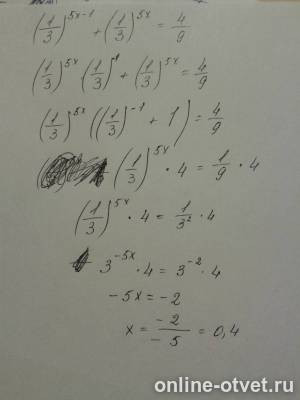 (1/3)^{5x-1} + (1/3)^{5x} = 4/9
(1/3)^{5x} (1/3)^{1} + (1/3)^{5x} = 4/9
(1/3)^{5x} ((1/3)^{-1} + 1) = 4/9
(1/3)^{5x} · 4 = 1/9 · 4
(1/3)^{5x} · 4 = 1/3^2 · 4
3^{-5x} · 4 = 3^{-2} · 4
-5x = -2
x = -2/-5 = 0,4
online-otvet.ru